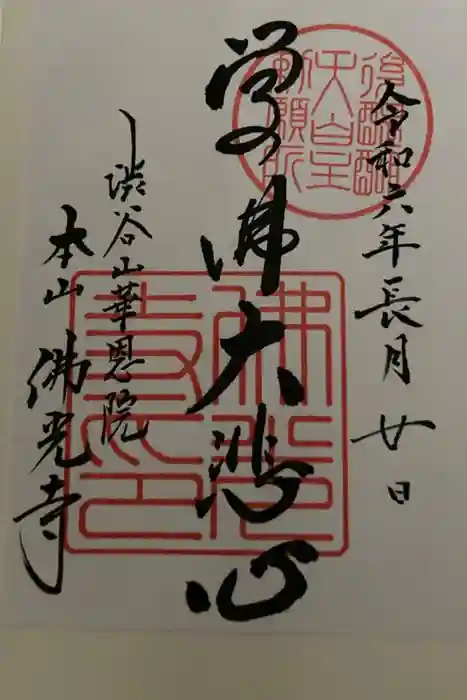 令和六年長月廿日
後醍醐
天皇
勅願所
学佛大悲心
佛光寺印
渋谷山華恩院
本山佛光寺